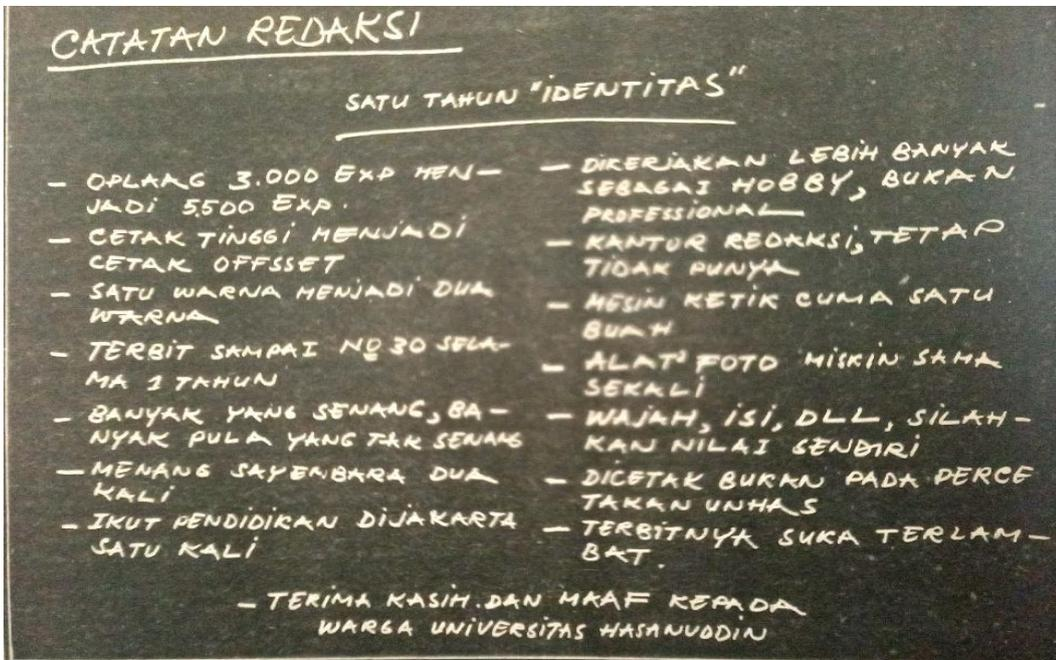 CATATAN REDAKSI
SATU TAHUN "IDENTITAS"
- OPLAAG 3.000 EXP MEN-
JADI 5.500 EXP.
- CETAK TINGGI MENJADI
CETAK OFFSSET
- SATU WARNA MENJADI DUA
WARNA
- TERBIT SAMPAI NO 30 SELA-
MA 1 TAHUN
- BANYAK YANG SENANG, BA-
NYAK PULA YANG TAK SENANG
- MENANG SAYENBARA DUA
KALI
- IKUT PENDIDIKAN DIJAKARTA
SATU KALI
- DIKERJAKAN LEBIH BANYAK
SEBAGAI HOBBY, BUKAN
PROFESSIONAL
- KANTOR REDAKSI, TETAP
TIDAK PUNYA
- MESIN KETIK CUMA SATU
BUAH
- ALAT² FOTO MISKIN SAMA
SEKALI
- WAJAH, ISI, DLL, SILAH-
KAN NILAI SENDIRI
- DICETAK BUKAN PADA PERCE
TAKAN UNHAS
- TERBITNYA SUKA TERLAM-
BAT.
- TERIMA KASIH DAN MAAF KEPADA
WARGA UNIVERSITAS HASANUDDIN